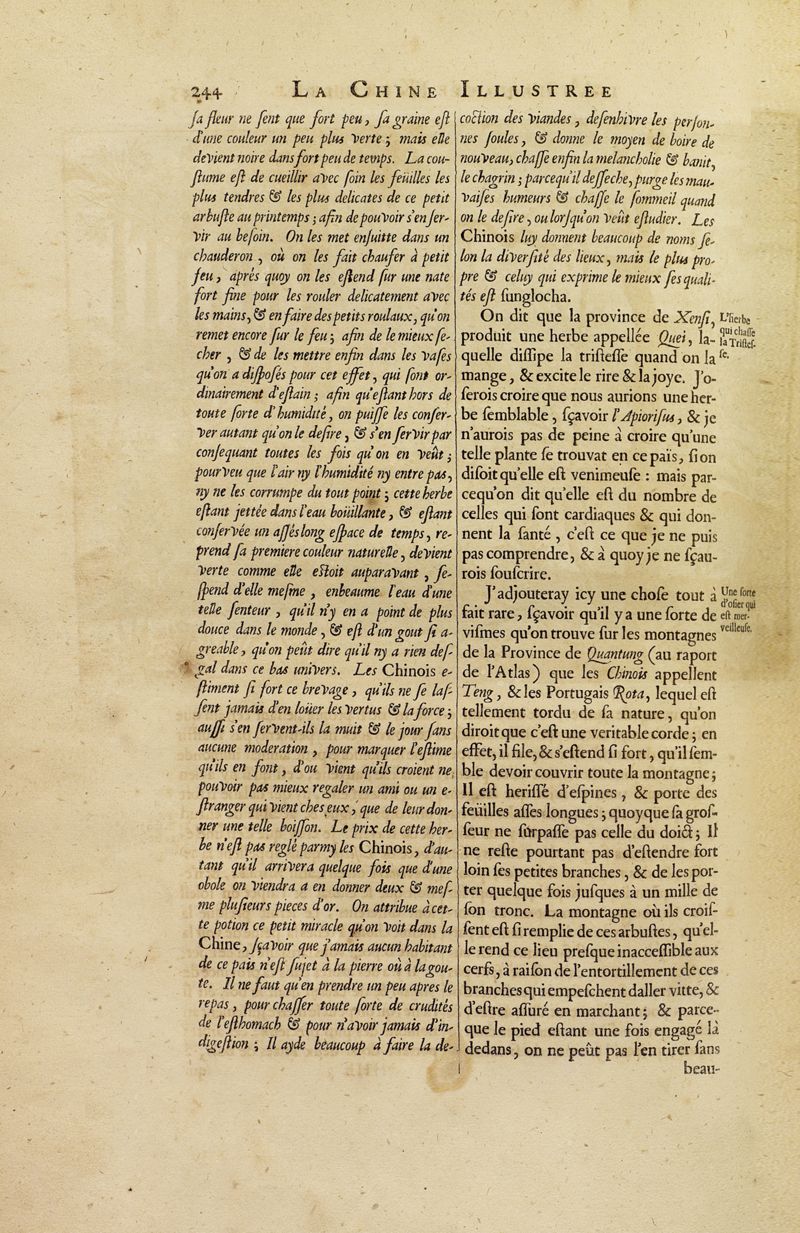 244 LA CHINE ILLUSTREE
ſa fleur ne ſent que fort peu, ſa graine eſt
d'une couleur un peu plus verte; mais elle
devient noire dans fort peu de temps. La cou-
ſtume eſt de cueillir avec ſoin les feüilles les
plus tendres & les plus delicates de ce petit
arbuſte au printemps; afin de pouvoir s'en ſer-
vir au beſoin. On les met enſuitte dans un
chauderon, où on les fait chaufer à petit
feu, aprés quoy on les eſtend ſur une nate
fort fine pour les rouler delicatement avec
les mains, & en faire des petits roulaux, qu'on
remet encore ſur le feu; afin de le mieux ſe-
cher, & de les mettre enfin dans les vaſes
qu'on a diſpoſés pour cet effet, qui ſont or-
dinairement d'eſtain; afin qu'eſtant hors de
toute ſorte d'humidité, on puiſſe les conſer-
ver autant qu'on le deſire, & s'en ſervir par
conſequant toutes les fois qu'on en veût;
pourveu que l'air ny l'humidité ny entre pas,
ny ne les corrumpe du tout point; cette herbe
eſtant jettée dans l'eau boüillante, & eſtant
conſervée un aſſés long eſpace de temps, re-
prend ſa premiere couleur naturelle, devient
verte comme elle eſtoit auparavant, ſe-
ſpend d'elle meſme, enbeaume l'eau d'une
telle ſenteur, qu'il n'y en a point de plus
douce dans le monde, & eſt d'un gout ſi a-
greable, qu'on peût dire qu'il ny a rien deſ-
gal dans ce bas univers. Les Chinois e-
ſtiment ſi fort ce brevage, qu'ils ne ſe laſ-
ſent jamais d'en loüer les vertus & la force;
auſſi s'en ſervent-ils la nuit & le jour ſans
aucune moderation, pour marquer l'eſtime
qu'ils en font, d'ou vient qu'ils croient ne
pouvoir pas mieux regaler un ami ou un e-
ſtranger qui vient ches eux, que de leur don-
ner une telle boiſſon. Le prix de cette her-
be n'eſt pas reglé parmy les Chinois, d'au-
tant qu'il arrivera quelque fois que d'une
obole on viendra a en donner deux & meſ-
me pluſieurs pieces d'or. On attribue à cet-
te potion ce petit miracle qu'on voit dans la
Chine, ſçavoir que jamais aucun habitant
de ce pais n'eſt ſujet à la pierre où à la gou-
te. Il ne faut qu'en prendre un peu apres le
repas, pour chaſſer toute ſorte de crudités
de l'eſthomach & pour n'avoir jamais d'in-
digeſtion; Il ayde beaucoup à faire la de-
coction des viandes, deſenhivre les perſon-
nes ſoules, & donne le moyen de boire de
nouveau, chaſſe enfin la melancholie & banit,
le chagrin; parcequ'il deſſeche, purge les mau-
vaiſes humeurs & chaſſe le ſommeil quand
on le deſire, ou lorſqu'on veût eſtudier. Les
Chinois luy donnent beaucoup de noms ſe-
lon la diverſité des lieux, mais le plus pro-
pre & celuy qui exprime le mieux ſes quali-
tés eſt ſunglocha.
On dit que la province de Xenſi,
produit une herbe appellée Quei, la-
quelle diſſipe la triſteſſe quand on la
mange, & excite le rire & la joye. J'o-
ſerois croire que nous aurions une her-
be ſemblable, ſçavoir l'Apioriſus, & je
n'aurois pas de peine à croire qu'une
telle plante ſe trouvat en ce païs, ſi on
diſoit qu'elle eſt venimeuſe : mais par-
cequ'on dit qu'elle eſt du nombre de
celles qui ſont cardiaques & qui don-
nent la ſanté, c'eſt ce que je ne puis
pas comprendre, & à quoy je ne ſçau-
rois ſouſcrire.
J'adjouteray icy une choſe tout à
fait rare, ſçavoir qu'il y a une ſorte de
viſmes qu'on trouve ſur les montagnes
de la Province de Quantung (au raport
de l'Atlas) que les Chinois appellent
Teng, & les Portugais Rota, lequel eſt
tellement tordu de ſa nature, qu'on
diroit que c'eſt une veritable corde; en
effet, il file, & s'eſtend ſi fort, qu'il ſem-
ble devoir couvrir toute la montagne;
Il eſt heriſſé d'eſpines, & porte des
feüilles aſſes longues; quoyque ſa groſ-
ſeur ne ſurpaſſe pas celle du doict; Il
ne reſte pourtant pas d'eſtendre fort
loin ſes petites branches, & de les por-
ter quelque fois juſques à un mille de
ſon tronc. La montagne où ils croiſ-
ſent eſt ſi remplie de ces arbuſtes, qu'el-
le rend ce lieu preſque inacceſſible aux
cerfs, à raiſon de l'entortillement de ces
branches qui empeſchent daller vitte, &
d'eſtre aſſuré en marchant; & parce-
que le pied eſtant une fois engagé là
dedans, on ne peût pas l'en tirer ſans
beau-
L'herbe
qui chaſſe
la Triſteſ-
ſe.
Une ſorte
d'oſier qui
eſt mer-
veilleuſe.